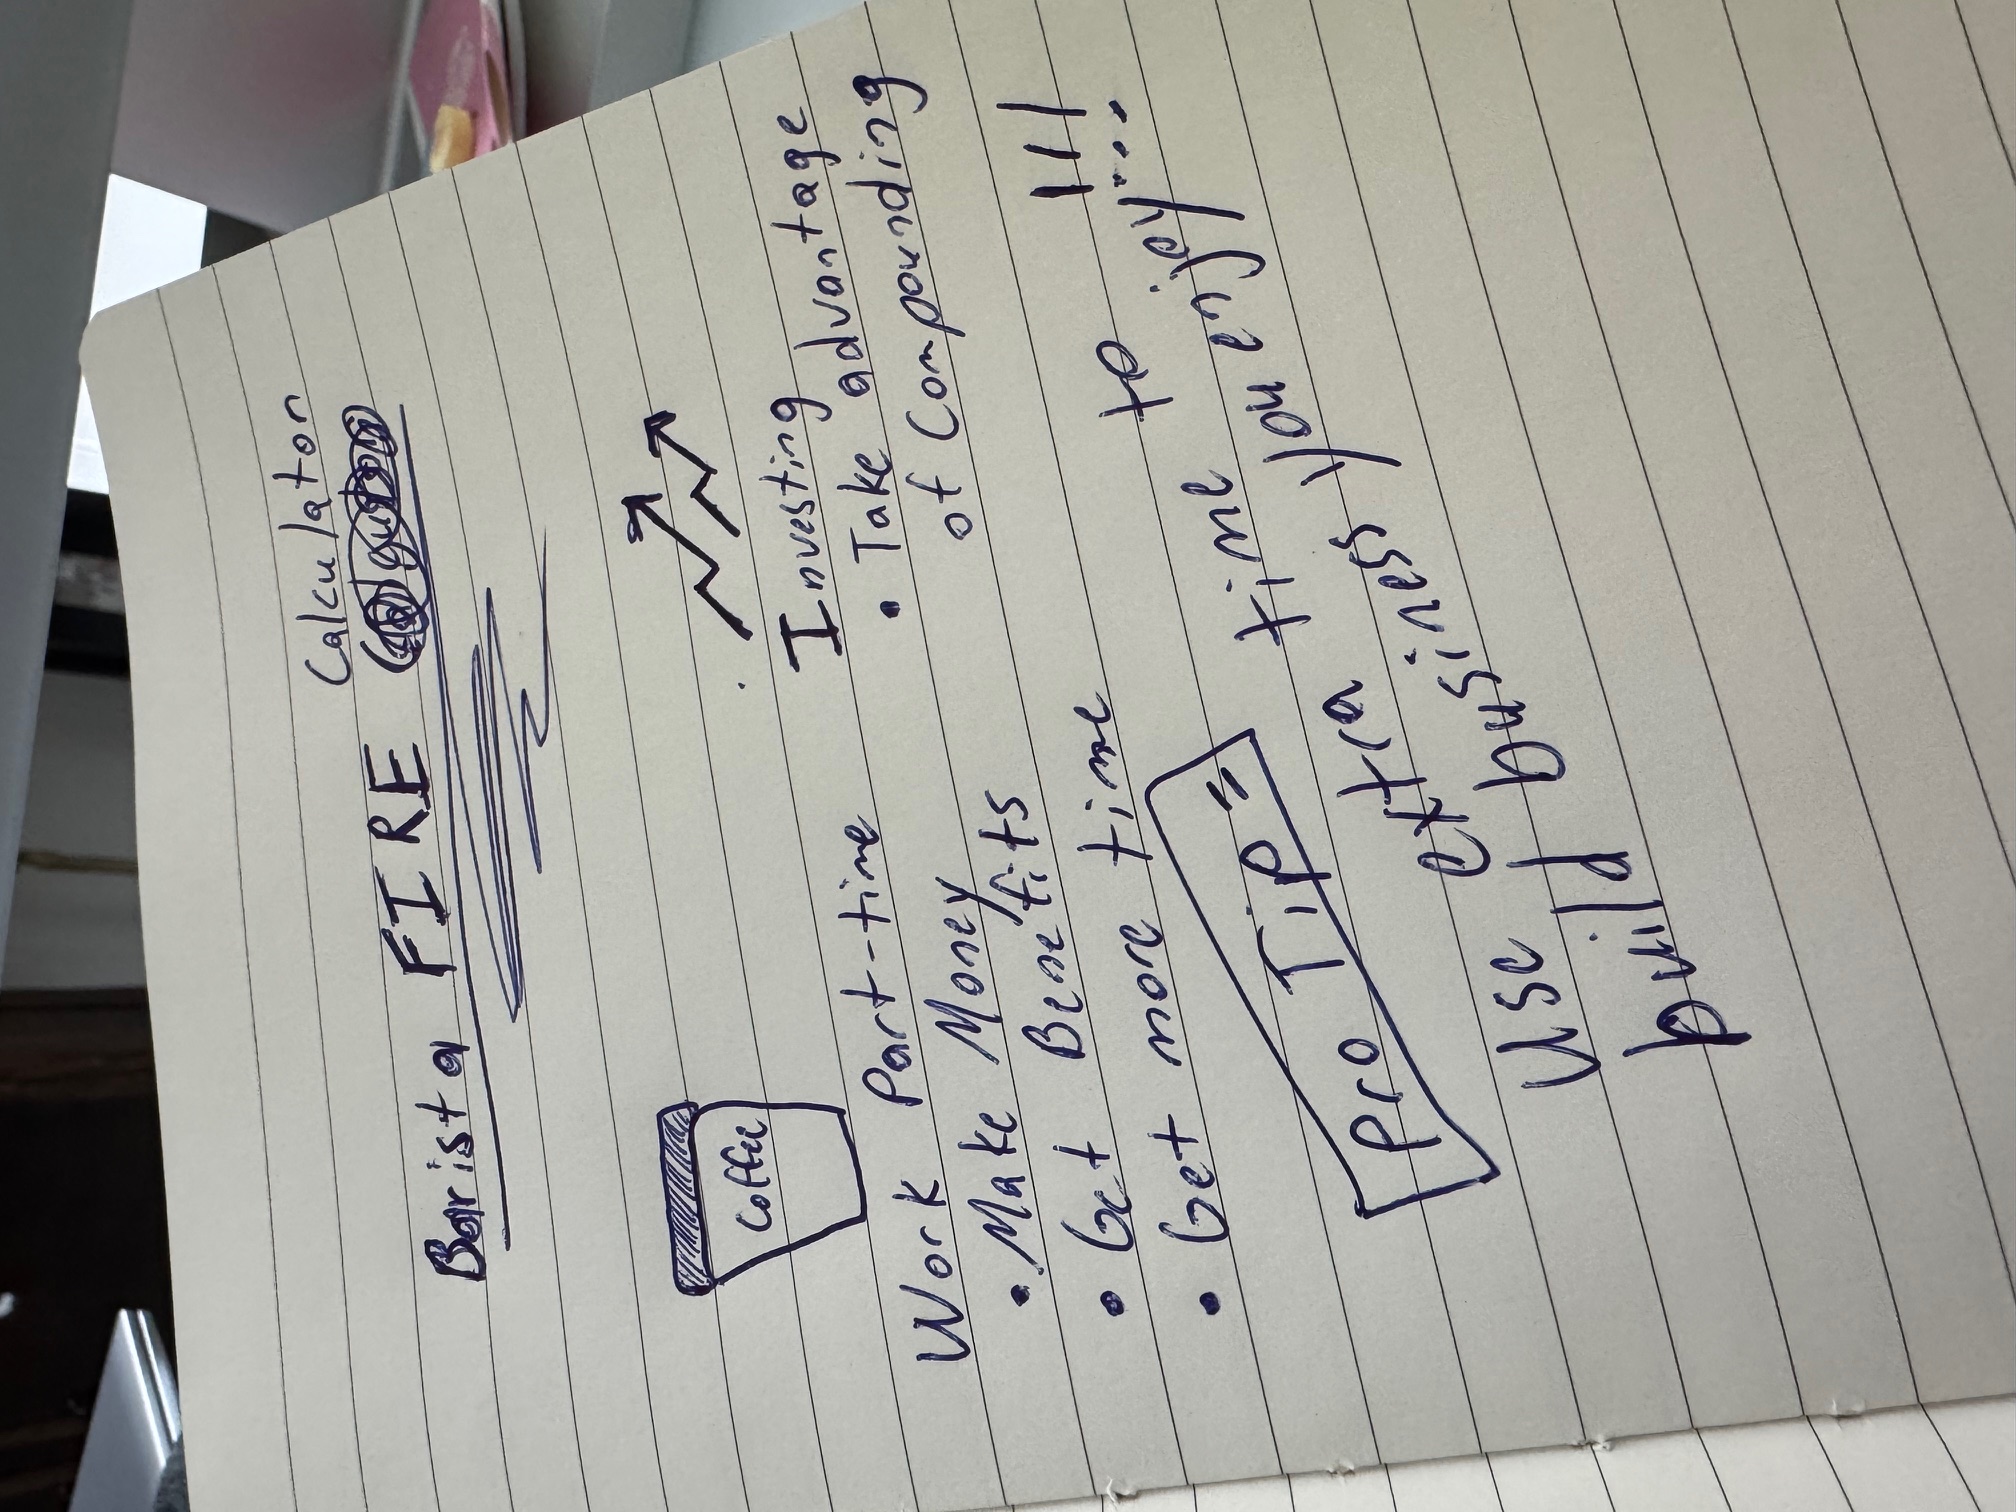 Calculator
Barista FIRE
Coffee
Work Part-time
• Make Money
• Get Benefits
• Get more time
Investing
• Take advantage
of Compounding
Pro Tip =
Use extra time to
build business you enjoy!!!